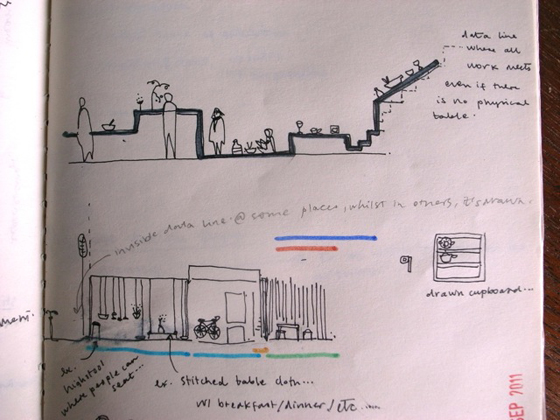 data line
where all
work meets
even if there
is no physical
table.
invisible data line @ some places, whilst in others, it's drawn.
drawn cupboard...
ex.
highstool
where people can
seat...
ex. stitched table cloth...
w/ breakfast/dinner/etc....
SEP 2011